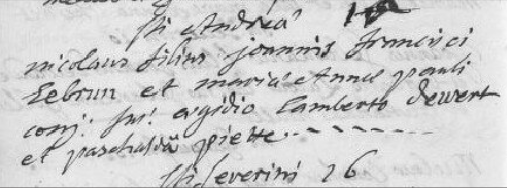 Sti Andreá
nicolaus filius joannis francisci
Lebrun et mariá Annæ pauli
conj: sus: ægidio Lamberto dewert
et paschasiâ piette
Sti Severini 26